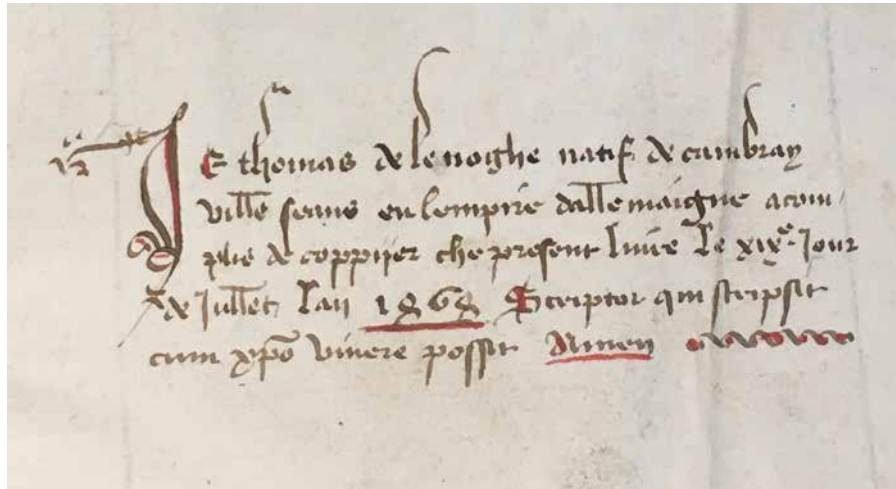 JE thomas de le noghe natif de cambray
ville seans en lempire dallemaigne acom
plis de coppijer che present livre Le xixe Jour
de Jullet Lan 1868 Scriptor qui scripsit
cum xpo vivere possit Amen